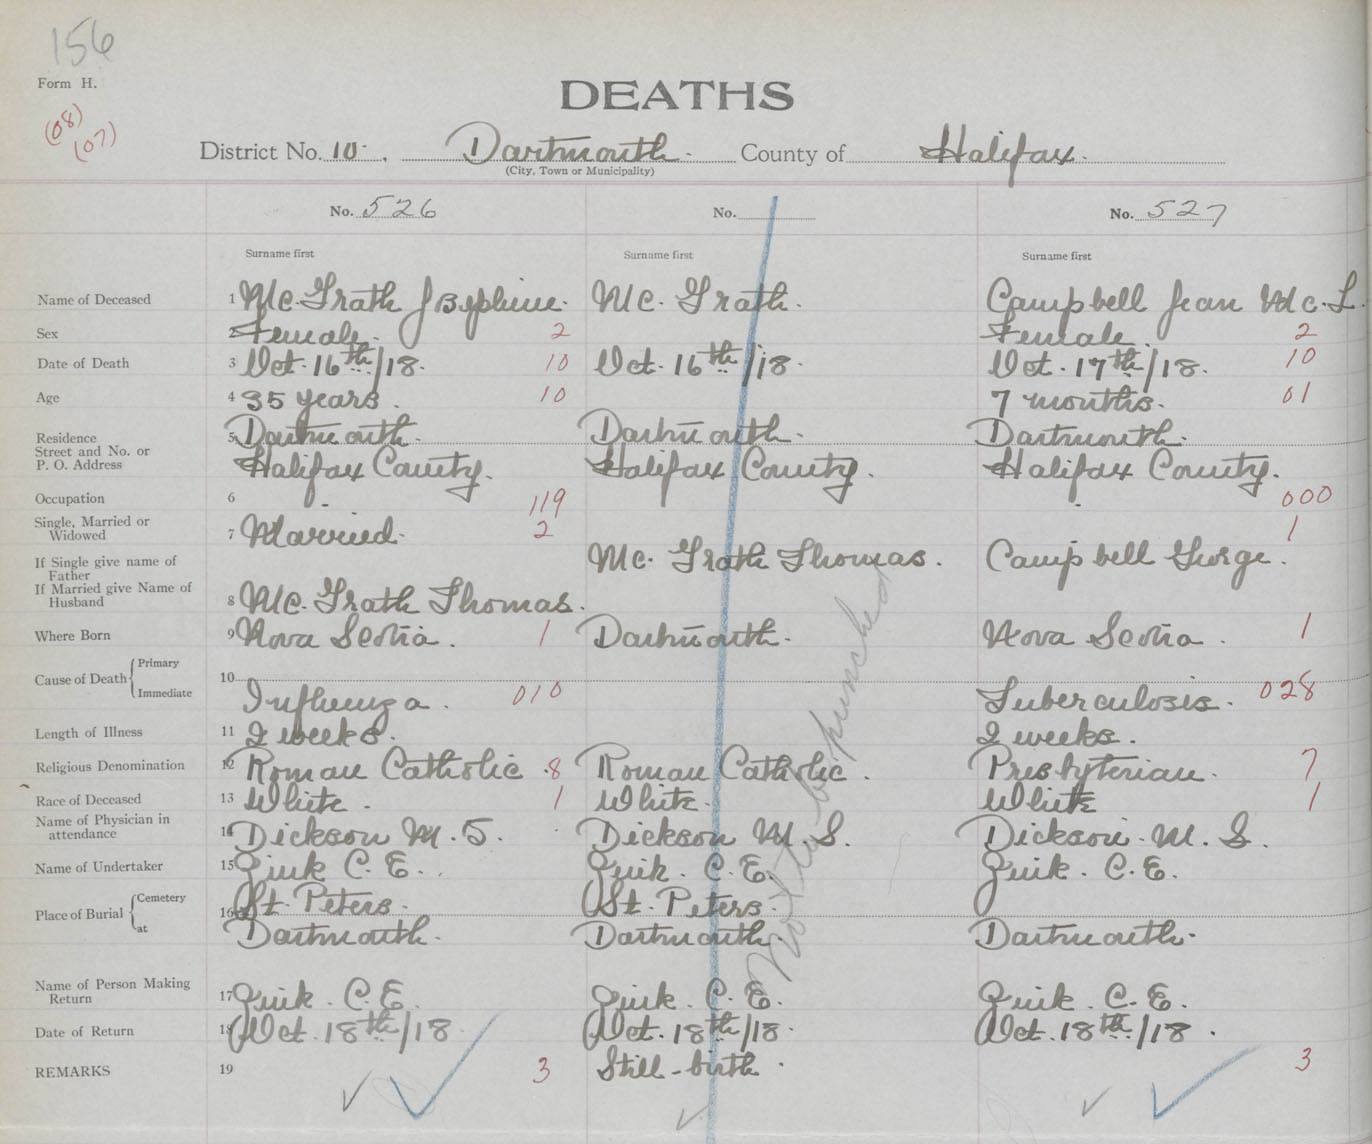 156
Form H.
DEATHS
(08)
(07)
District No. 10 . Dartmouth. County of Halifax.
(City, Town or Municipality)
No. 526 No. No. 527
Surname first Surname first Surname first
Name of Deceased 1 Mc. Grath Josephine. Mc. Grath. Campbell Jean Mc. L.
Sex 2 Female. 2 Female. 2
Date of Death 3 Oct. 16th/18. 10 Oct. 16th/18. Oct. 17th/18. 10
Age 4 35 years. 10 7 months. 01
Residence 5 Dartmouth. Dartmouth. Dartmouth.
Street and No. or
P. O. Address Halifax County. Halifax County. Halifax County.
Occupation 6 - 119 - 000
Single, Married or
Widowed 7 Married. 2 1
If Single give name of
Father Mc. Grath Thomas. Campbell George.
If Married give Name of
Husband 8 Mc. Grath Thomas.
Where Born 9 Nova Scotia. 1 Dartmouth. Nova Scotia. 1
Cause of Death Primary 10
Immediate Influenza. 010 Tuberculosis. 028
Length of Illness 11 2 weeks. 2 weeks.
Religious Denomination 12 Roman Catholic .8 Roman Catholic. Presbyterian. 7
Race of Deceased 13 White. 1 White. White 1
Name of Physician in
attendance 14 Dickson M. S. Dickson M. S. Dickson. M. S.
Name of Undertaker 15 Zink C. E. Zink. C. E. Zink. C. E.
Place of Burial Cemetery 16 St. Peters. St. Peters.
at Dartmouth. Dartmouth. Dartmouth.
Name of Person Making
Return 17 Zink. C. E. Zink. C. E. Zink. C. E.
Date of Return 18 Oct. 18th/18 Oct. 18th/18. Oct. 18th/18.
REMARKS 19 3 Still-birth. 3
Not to be punched